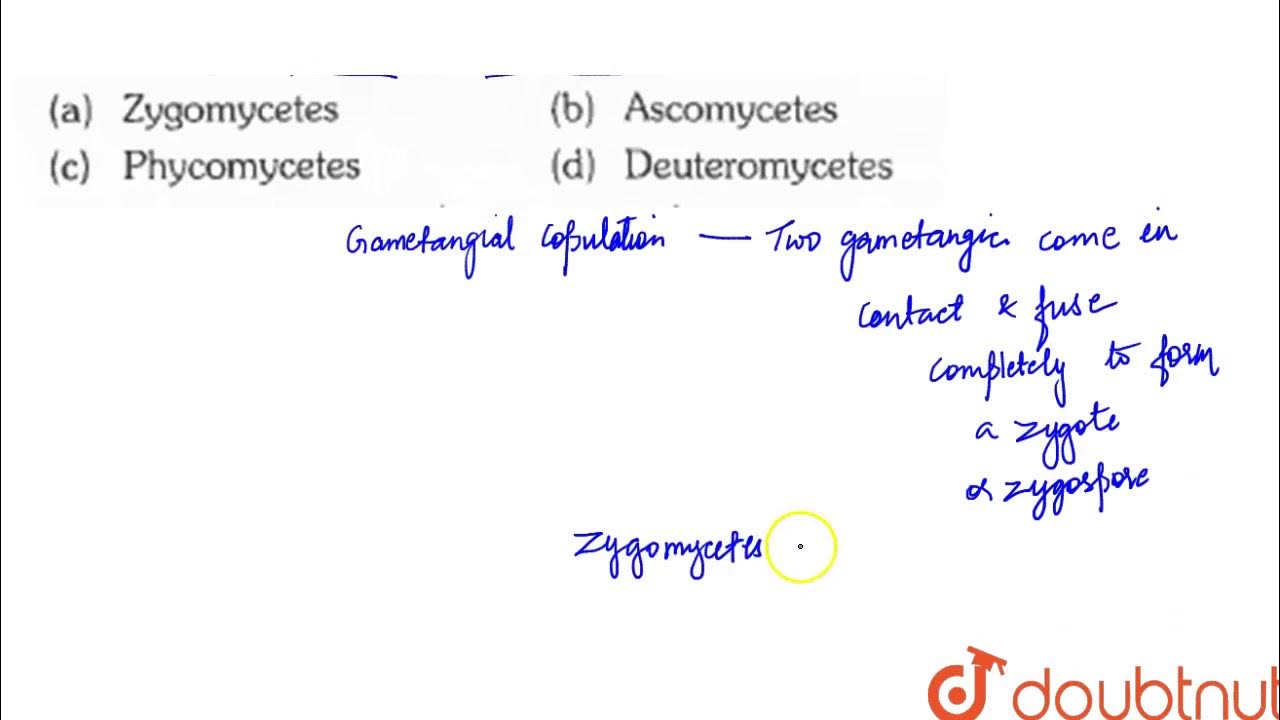 (a) Zygomycetes (b) Ascomycetes
(c) Phycomycetes (d) Deuteromycetes
Gametangial Copulation — Two gametangia come in
contact & fuse
completely to form
a zygote
or zygospore
Zygomycetes
doubtnut